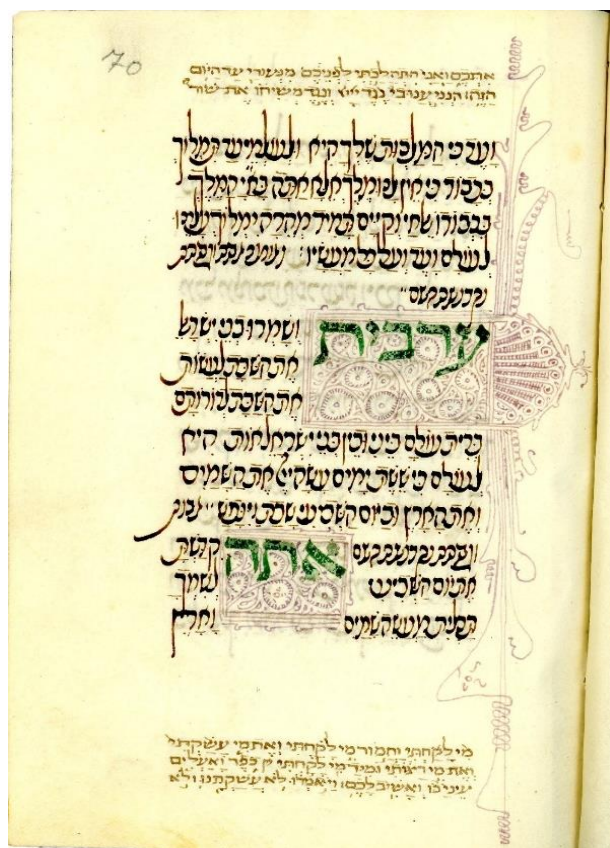 70
אתכם ואני התהלכתי לפניכם מנעורי עד היום
הזה: הנני ענו בי נגד ייי ונגד משיחו את שור
ועד כי המלכות שלך היא ולעולמי עד תמלוך
בכבוד כי אין לנו מלך אלא אתה בא״י המלך
בכבודו שחי וקיים תמיד מהרה ימלוך עלינו
לעולם ועד ועל כל מעשיו:
ערבית ושמרו בני ישראל
את השבת לעשות
את השבת לדורותם
ברית עולם ביני ובין בני ישראל אות היא
לעולם כי ששת ימים עשה יי את השמים
ואת הארץ וביום השביעי שבת וינפש
אתה קדשת
את יום השביעי לשמך
תכלית מעשה שמים וארץ
מי לקחתי וחמור מי לקחתי ואת מי עשקתי
ואת מי רצותי ומיד מי לקחתי כפר ואעלים
עיני בו ואשיב לכם: ויאמרו לא עשקתנו ולא